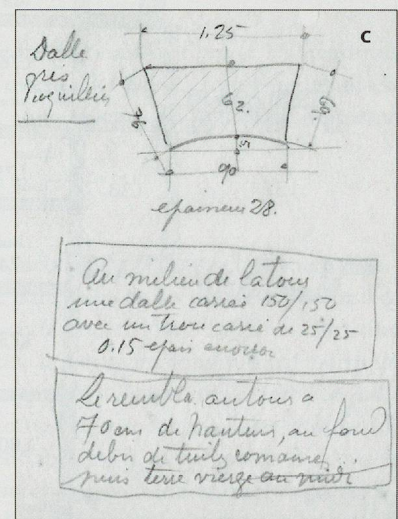 C
1.25
Dalle
près
62.
69.
5
90
epaisseur 28.
Au milieu de la tour
une dalle carrée 150/150
avec un trou carré de 25/25
0.15 epais environ
Le rembla autour a
70 cm de hauteur, au fond
debis de tuiles romaines
puis terre vierge au midi